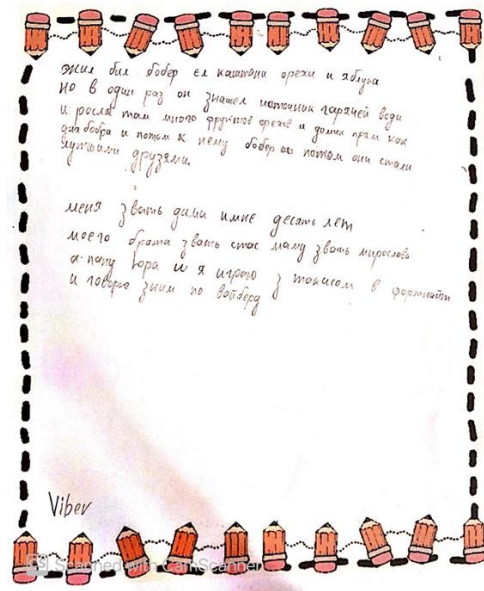 жил бил бобер ел каштани орехи и яблука
но в один раз он знашел источник гарячей води
и росля там много фруктов орехов и домик прям как
для бобра и потом к нему бобер потом они стали
лутшими друзями.
меня звать дима и мне десять лет
моего брата звать стас маму звать мирослава
а папу юра и я играю з в фортнайти
и говорю зним по вайберу
Viber
Scanned with CamScanner